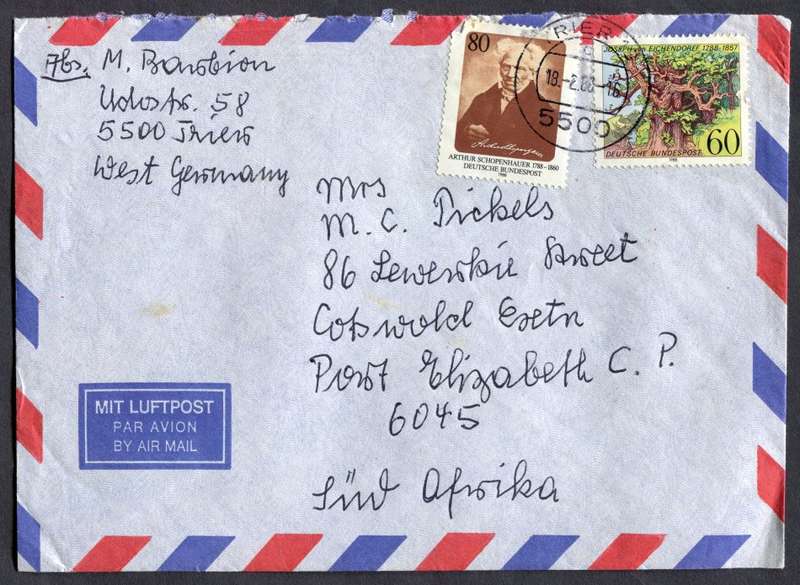 Abs. M. Barbion
Udostr. 58
5500 Trier
West Germany
80
ARTHUR SCHOPENHAUER 1788-1860
DEUTSCHE BUNDESPOST
1988
TRIER
18.-2.88-16
5500
JOSEPH von EICHENDORFF 1788-1857
60
DEUTSCHE BUNDESPOST
1988
Mrs
M. C. Pickels
86 Street
Cotswold Extn
Port Elizabeth C. P.
6045
Süd Afrika
MIT LUFTPOST
PAR AVION
BY AIR MAIL